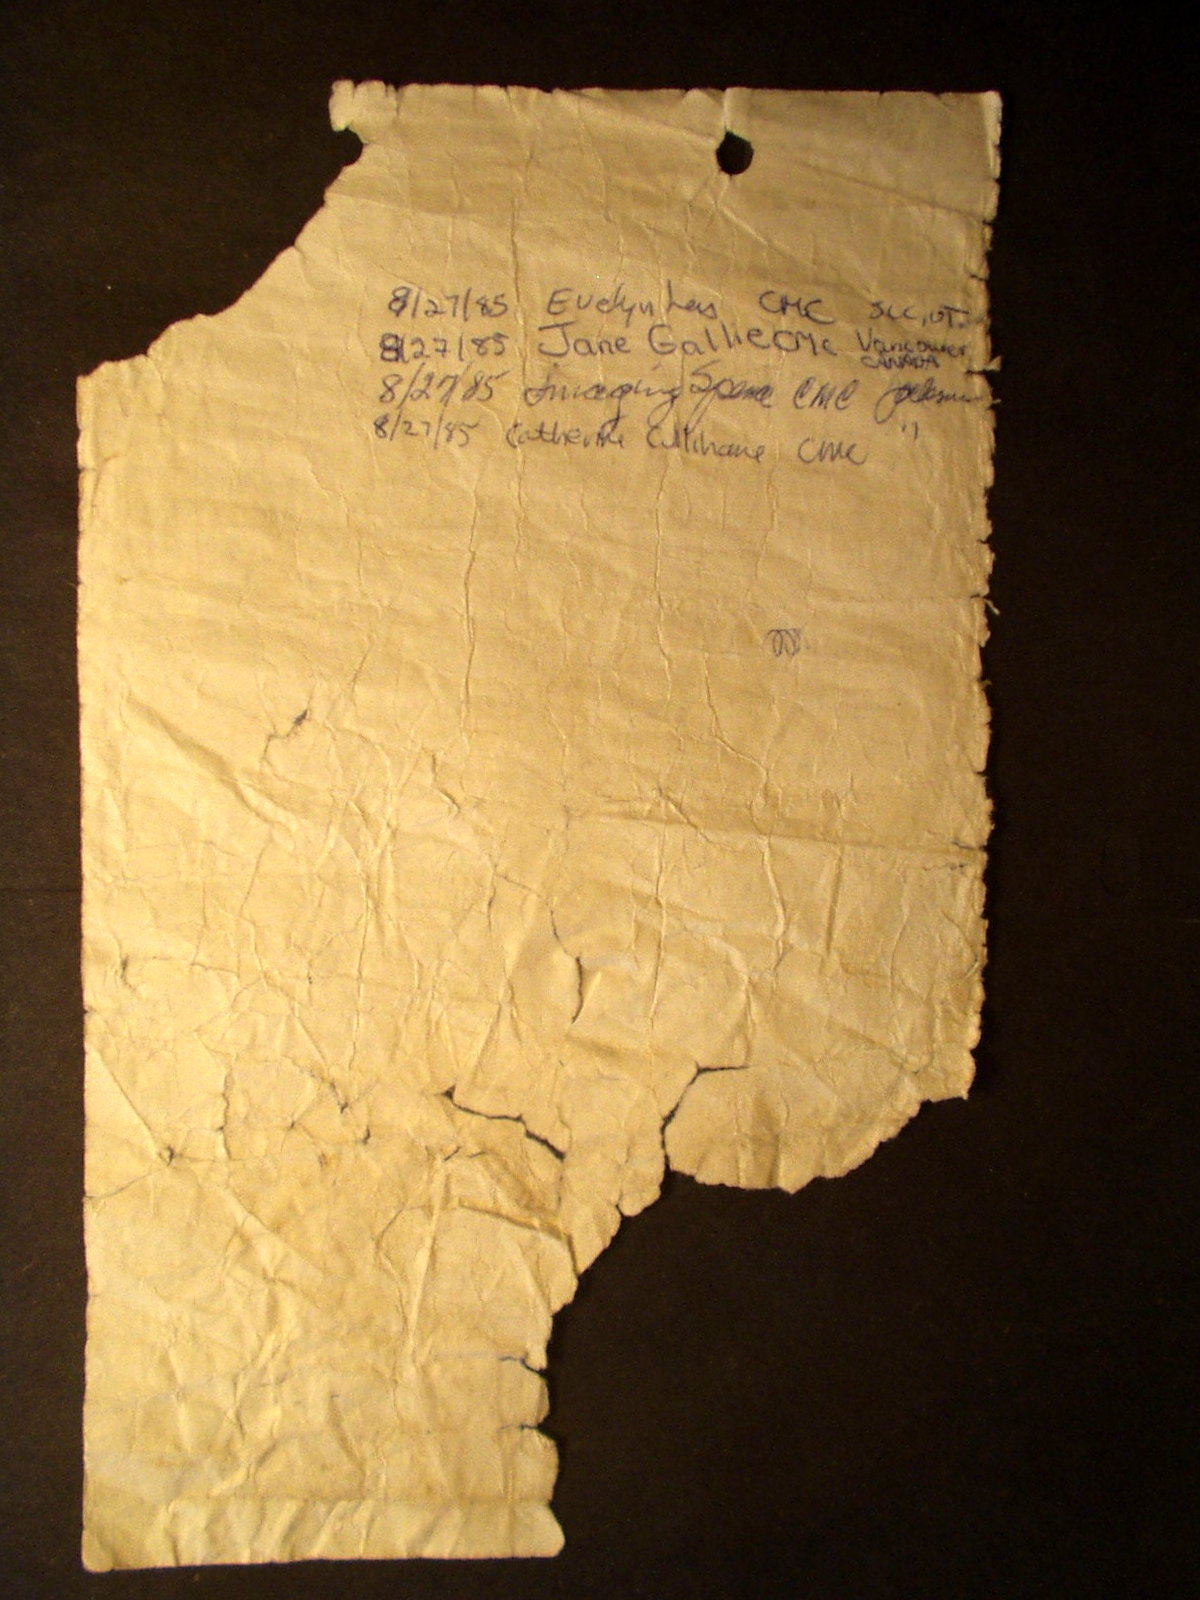 8/27/85 Evelyn Lees CMC SLC, UT.
8/27/85 Jane Gallie CMC Vancouver
CANADA
8/27/85 Imaging Spence CMC Jackson
8/27/85 Catherine Cullinane CMC "